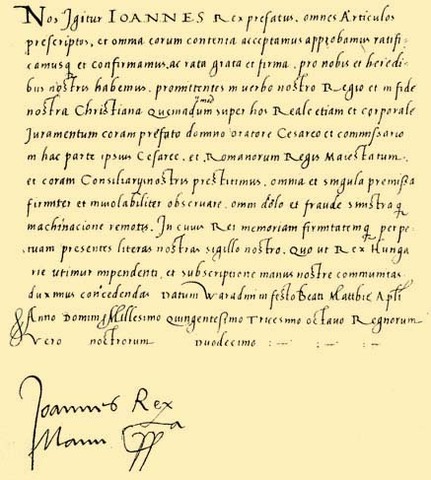 Nos Igitur IOANNES Rex prefatus, omnes Articulos
prescriptos, et omnia eorum contenta acceptamus approbamus ratifi-
camusq et confirmamus, ac rata grata et firma, pro nobis et heredi-
bus nostris habemus, promittentes in verbo nostro Regio et in fide
nostra Christiana Quemadmodum super hos Reale etiam et corporale
Juramentum coram prefato domino oratore Cesareo et commissario
in hac parte ipsius Cesaree, et Romanorum Regis Maiestatum,
et coram Consiliarijs nostris prestitimus, omnia et singula premissa
firmiter et inviolabiliter observare, omni dolo et fraude sinistraq
machinacione remotis. In cuius Rei memoriam firmitatemq perpe-
tuam presentes literas nostras sigillo nostro, Quo ut Rex Hunga
rie utimur inpendenti, et subscriptione manus nostre communitas
duximus concedendas Datum Waradini in festo Beati Matthie Apli
Anno Domini Millesimo Quingentesimo Tricesimo octavo Regnorum
Vero nostrorum Duodecimo
Joannes Rex
Manu